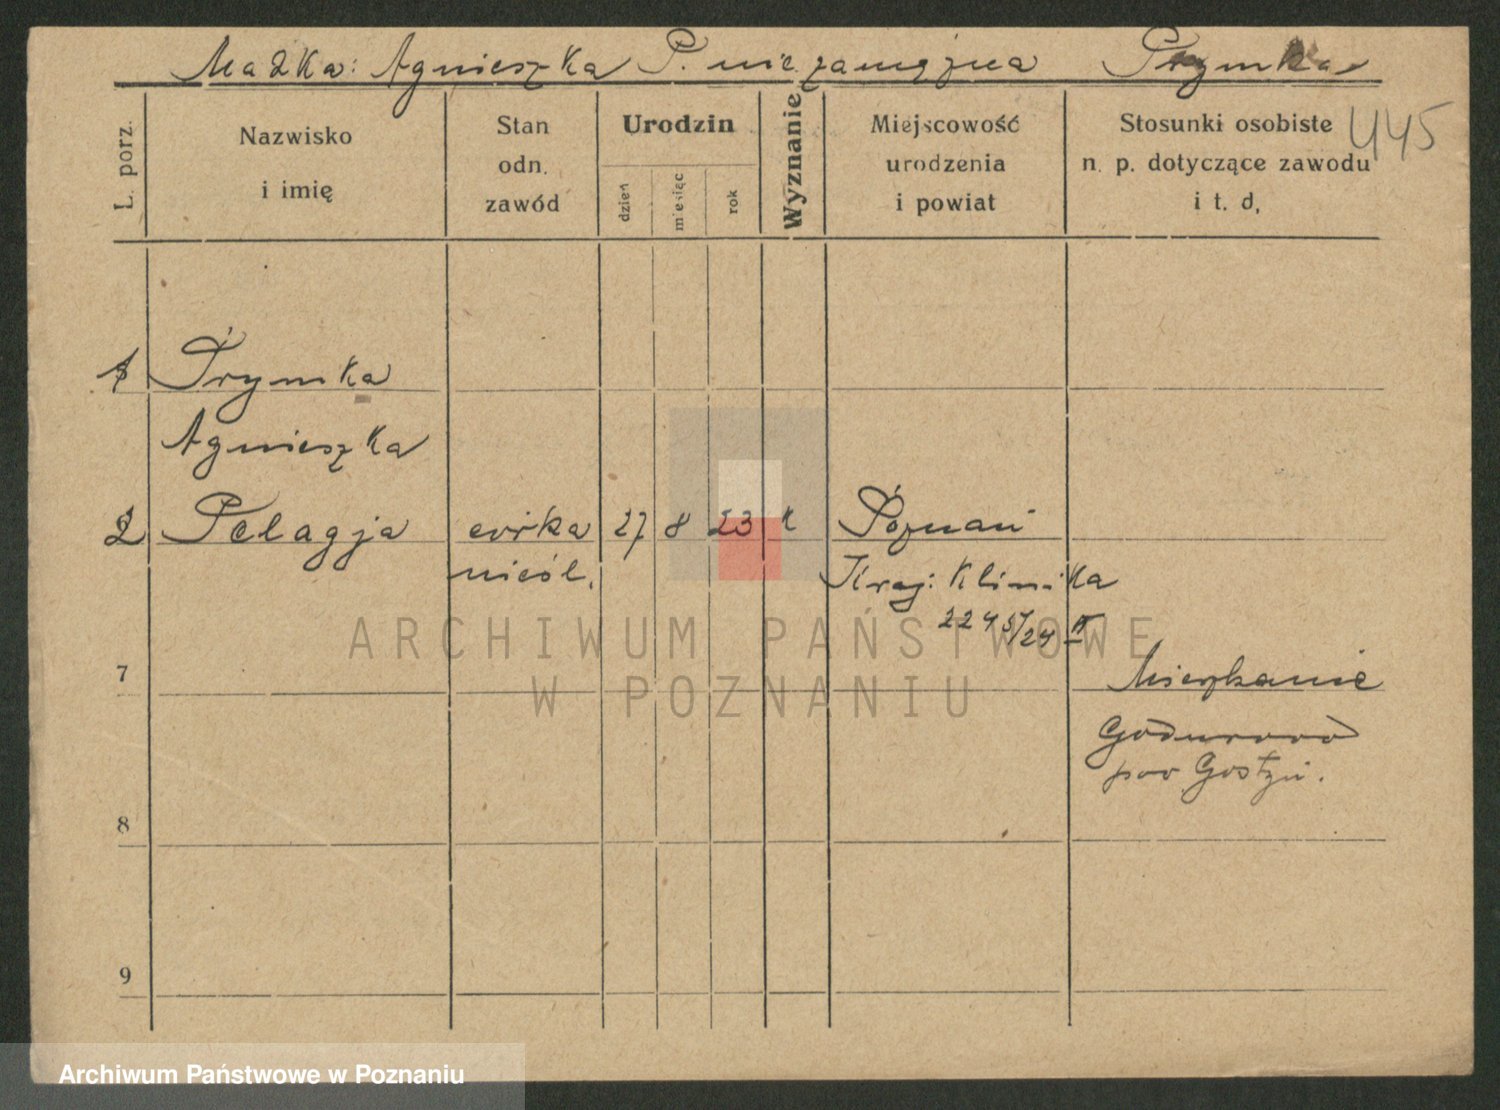 Matka: Agnieszka P. niezamężna Prymka
445
L. porz.
Nazwisko
i imię
Stan
odn.
zawód
Urodzin
dzień
miesiąc
rok
Wyznanie
Miejscowość
urodzenia
i powiat
Stosunki osobiste
n. p. dotyczące zawodu
i t. d.
Prymka
Agnieszka
2 Pelagja córka 27 8 23 k Poznań
nieśl. Kraj: Klinika
2245/24 II
ARCHIWUM PAŃSTWOWE
W POZNANIU
7
Mieszkanie
Godurowo
pow Gostyń.
8
9
Archiwum Państwowe w Poznaniu